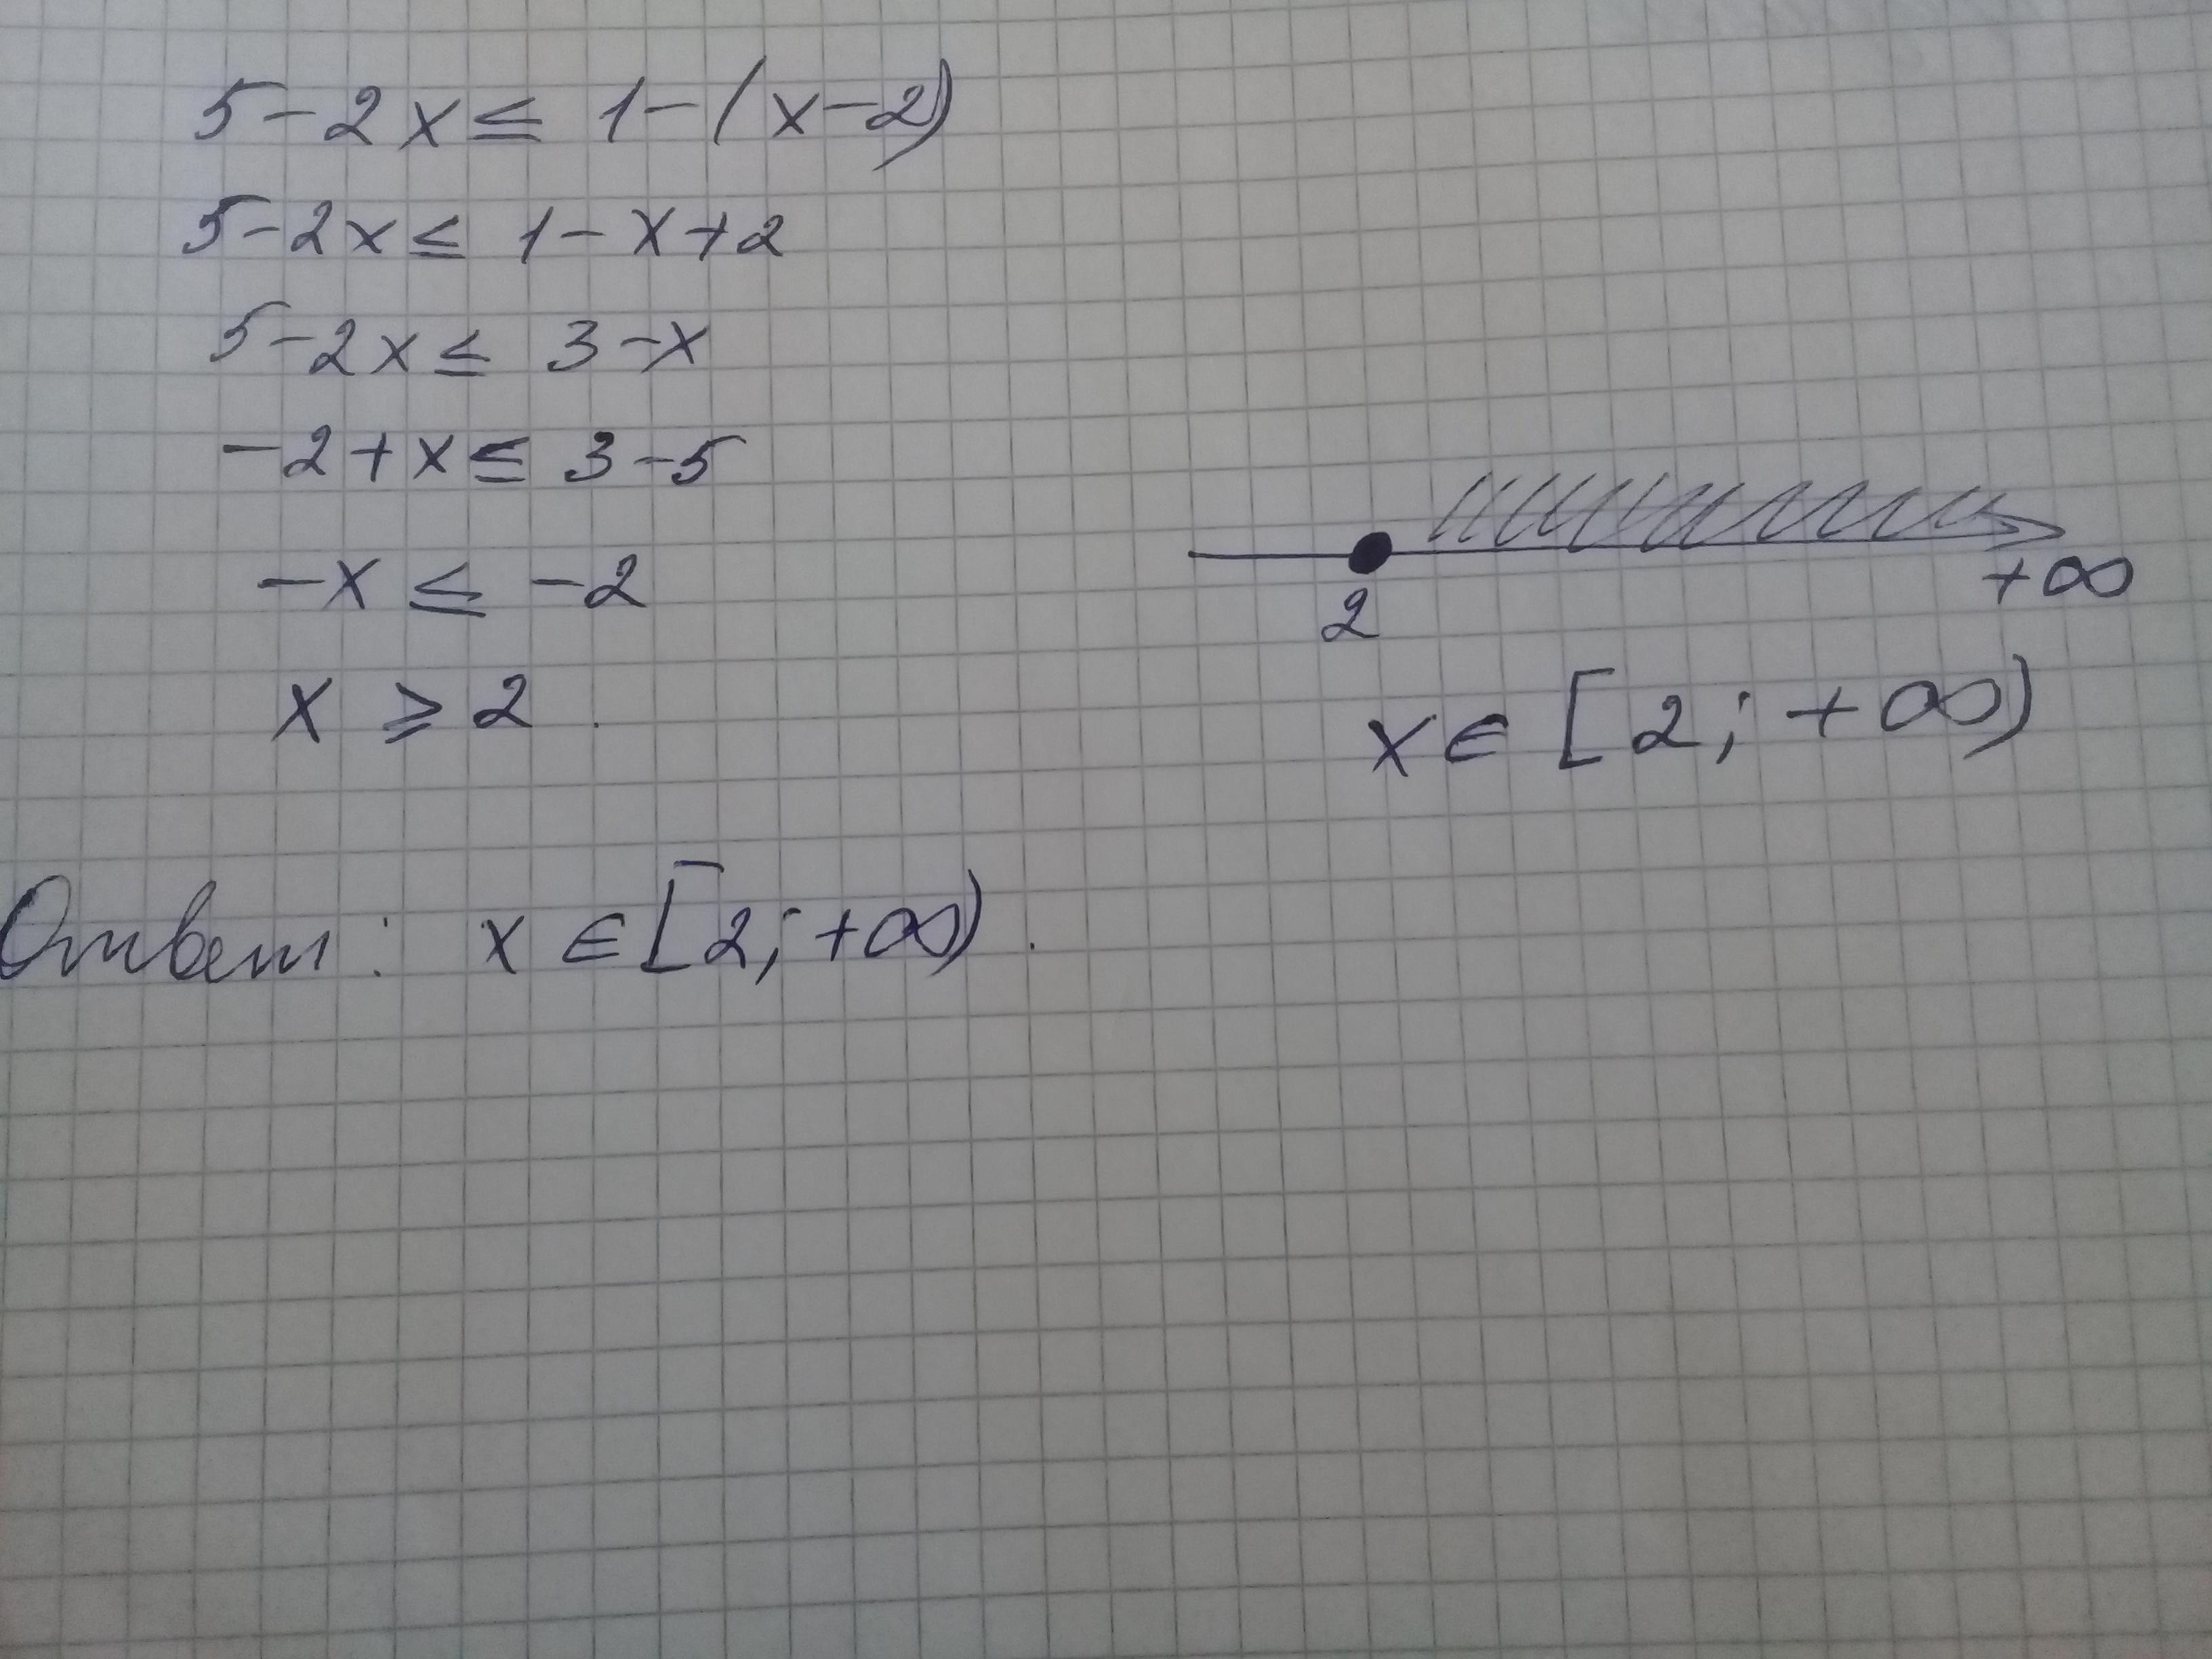 5-2x≤ 1-(x-2)
5-2x≤ 1-x+2
5-2x≤ 3-x
-2+x≤ 3-5
-x ≤ -2
x ⩾ 2.
2 +∞
x∈ [2; +∞)
Ответ: x ∈ [2; +∞).